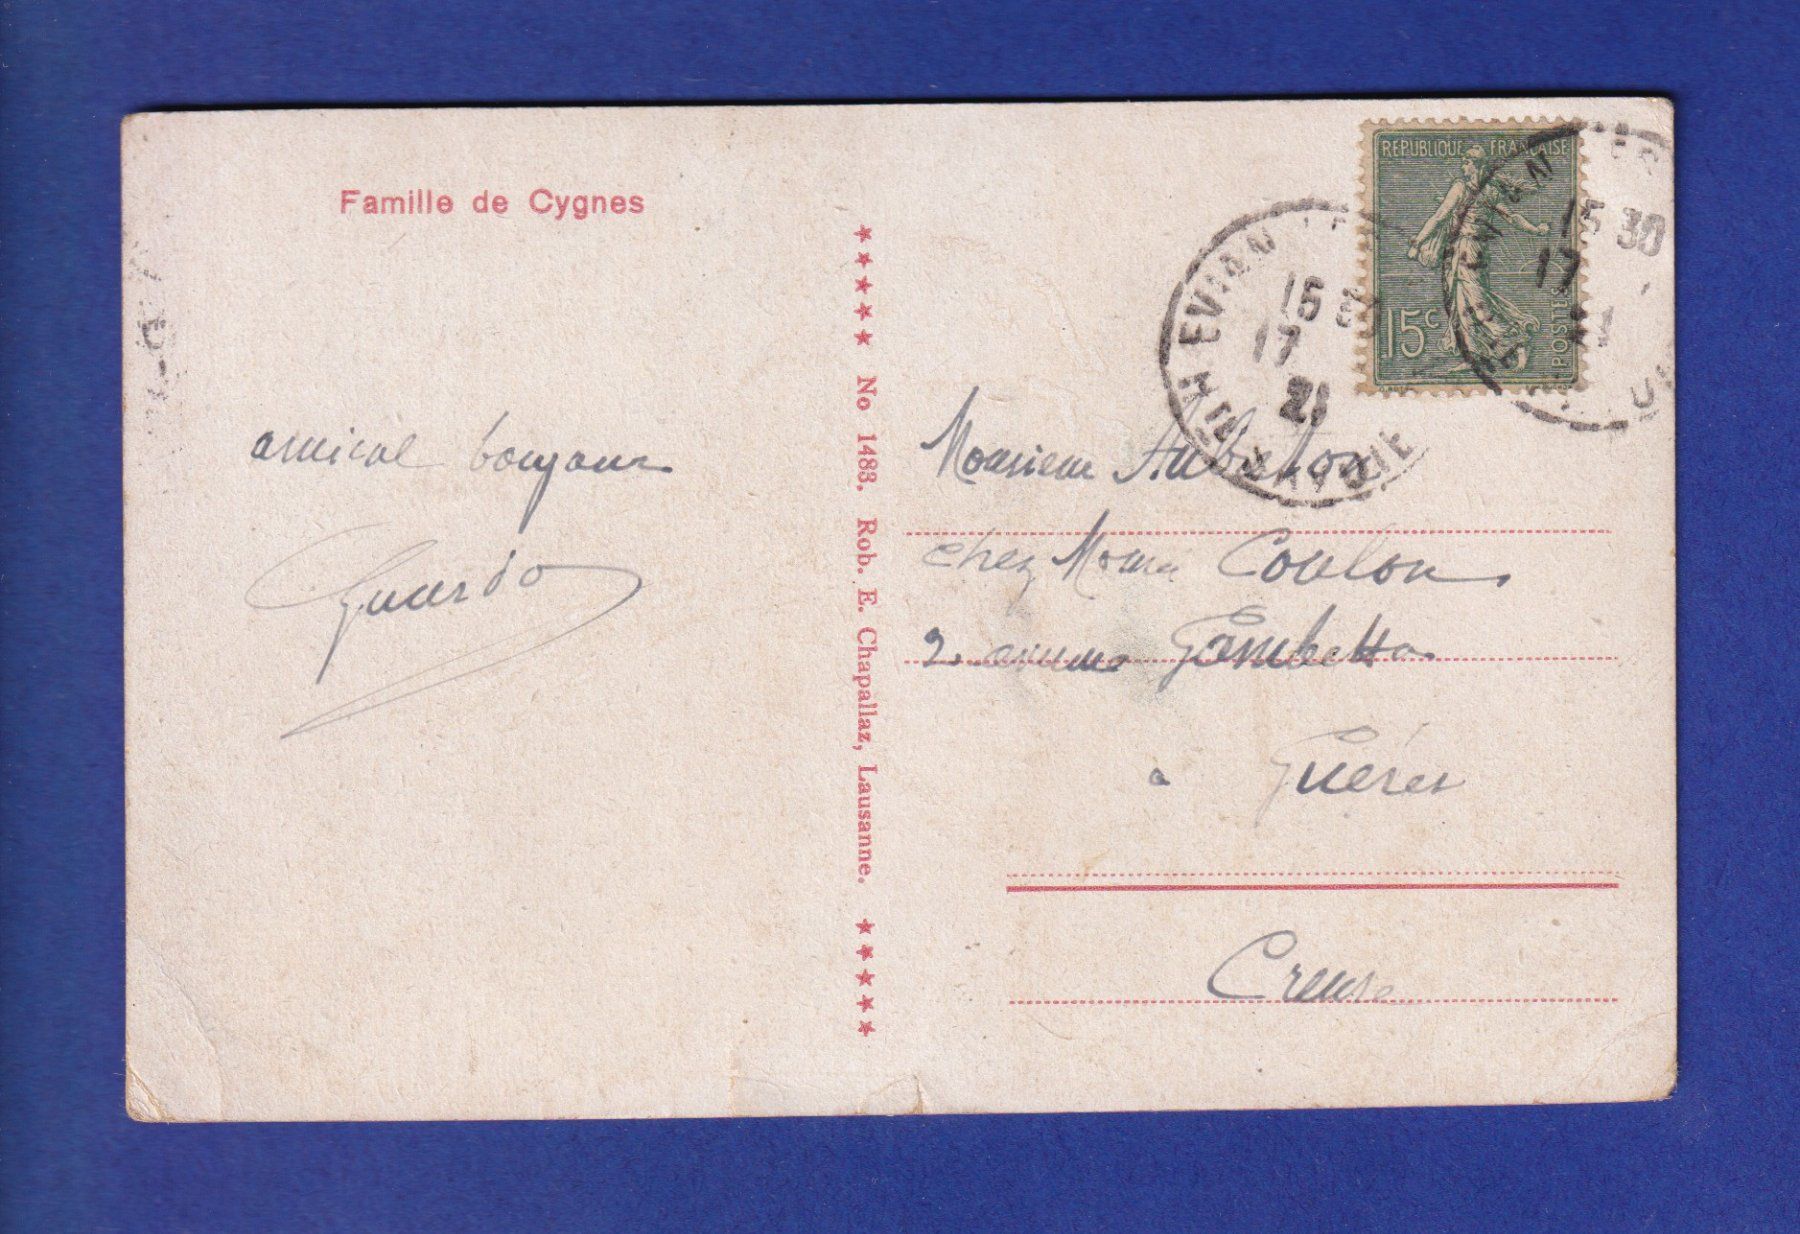 Famille de Cygnes
amical bonjour
★★★★★ No 1483. Rob. E. Chapallaz, Lausanne. ★★★★★
REPUBLIQUE FRANÇAISE
15c POSTES
EVIAN
15
17
21
HTE SAVOIE
EVIAN
15 30
17
21
Monsieur
chez Coulon
2. avenue Gambetta
a Guéret
Creuse